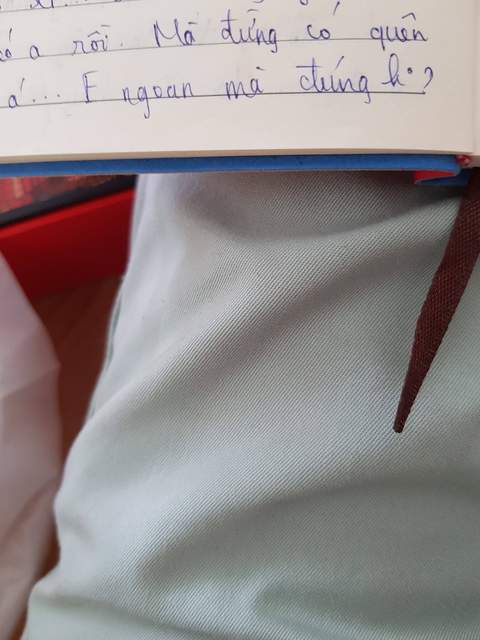 có a rồi. Mà đừng có quên
á... E ngoan mà đúng k?